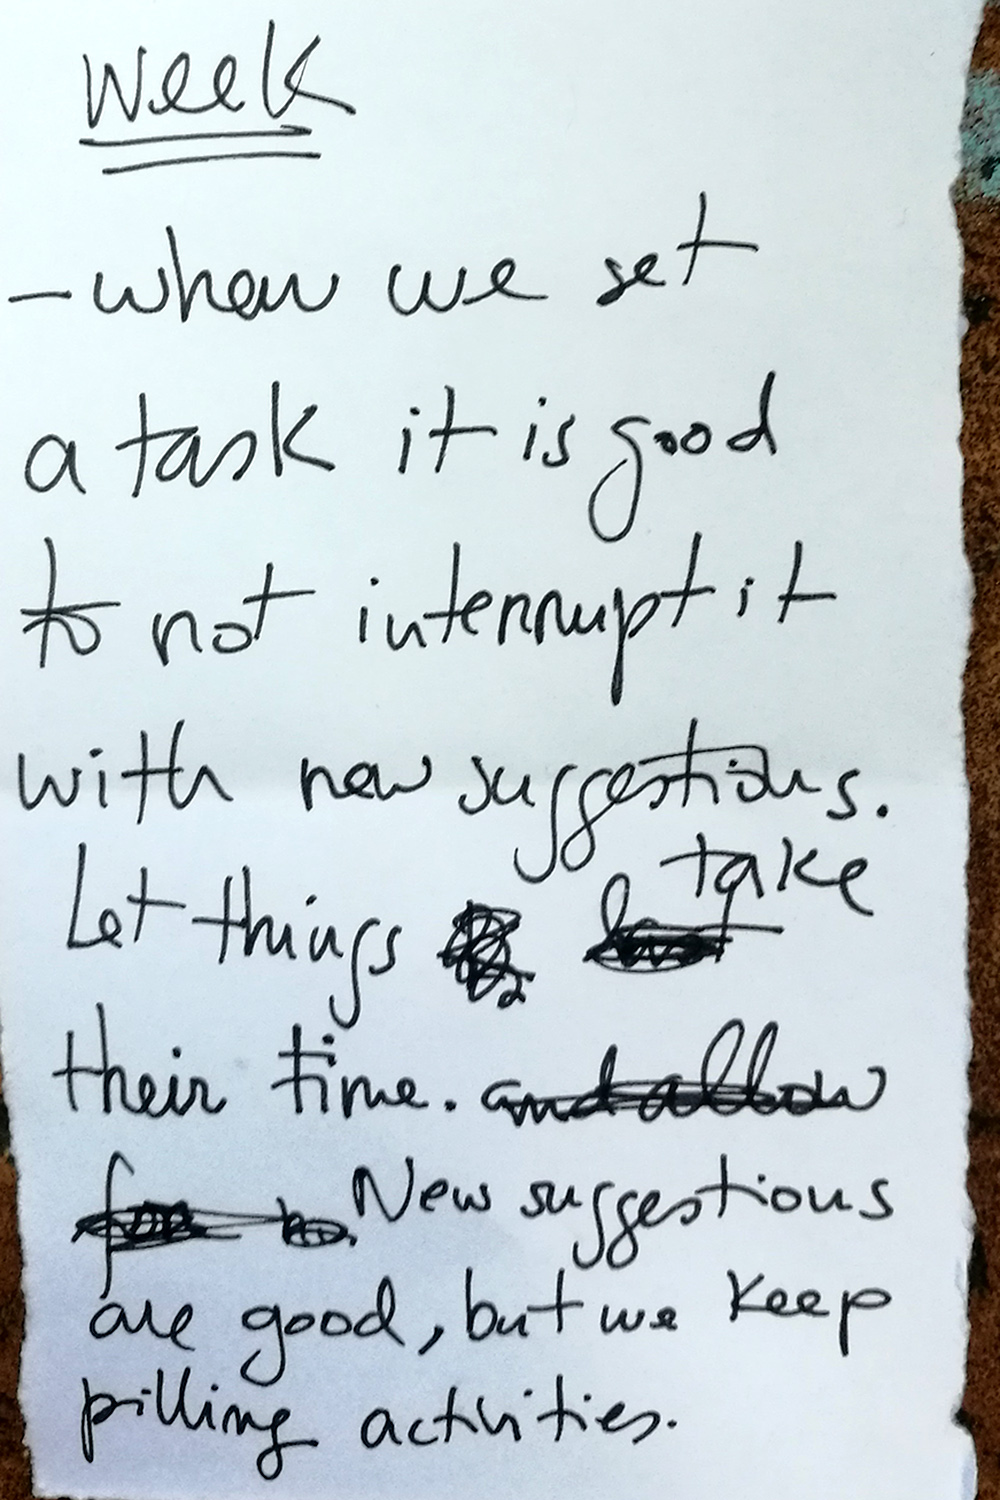 Week
- when we set
a task it is good
to not interrupt it
with new suggestions.
Let things take
their time. and allow
for New suggestions
are good, but we keep
pilling activities.